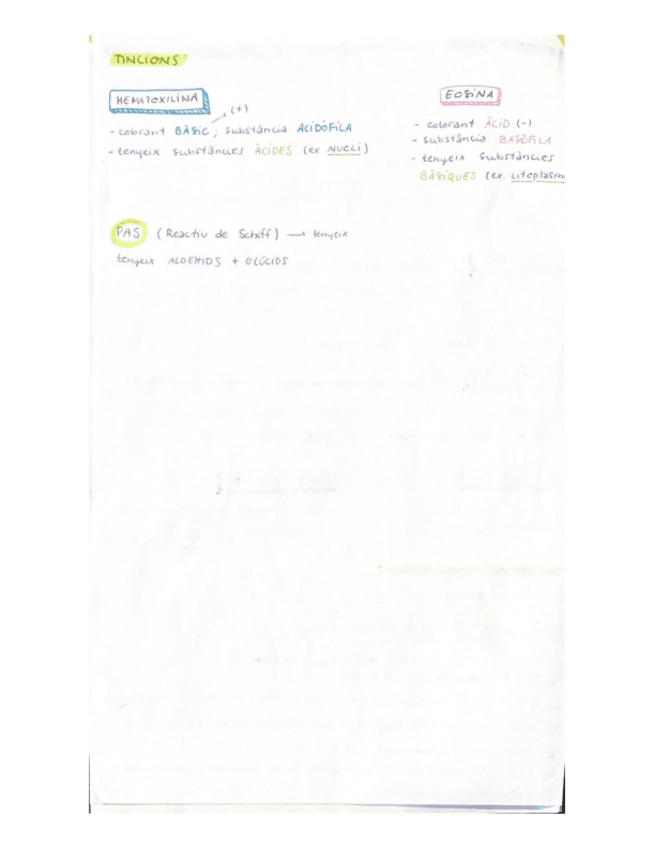 TINCIONS
HEMATOXILINA
(+)
- colorant BÀSIC ; substància ACIDÒFILA
- tenyeix substàncies ÀCIDES (ex NUCLI)
EOSINA
- colorant ÀCID (-)
- substància BASÒFILA
- tenyeix substàncies
BÀSIQUES (ex. citoplasm
PAS (Reactiu de Schiff) → tenyeix
tenyeix ALDEHIDS + GLÚCIDS